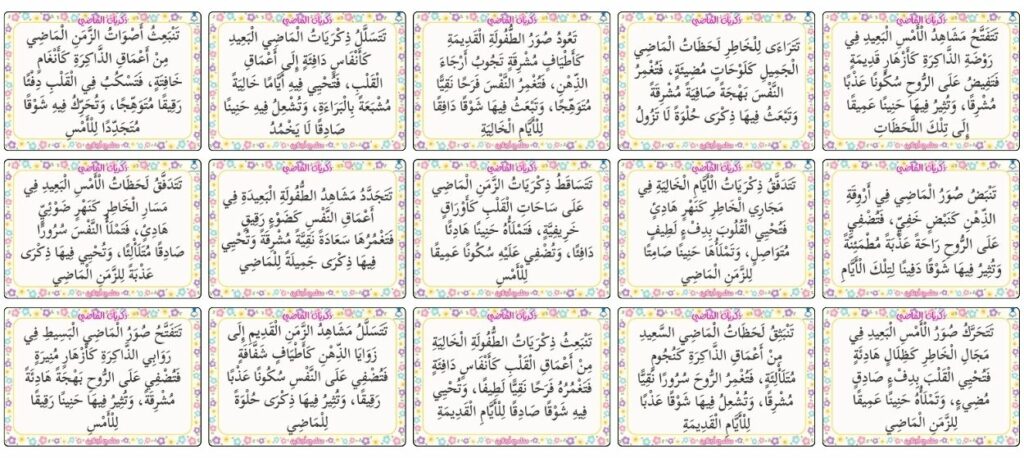 ذكريات الماضي
تَتَفَتَّحُ مَشَاهِدُ الْأَمْسِ الْبَعِيدِ فِي
رَوْضَةِ الذَّاكِرَةِ كَأَزْهَارٍ قَدِيمَةٍ
فَتَفِيضُ عَلَى الرُّوحِ سُكُونًا عَذْبًا
مُشْرِقًا، وَتُثِيرُ فِيهَا حَنِينًا عَمِيقًا
إِلَى تِلْكَ اللَّحَظَاتِ
ذكريات الماضي
تَتَرَاءَى لِلْخَاطِرِ لَحَظَاتُ الْمَاضِي
الْجَمِيلِ كَلَوْحَاتٍ مُضِيئَةٍ، فَتَغْمُرُ
النَّفْسَ بَهْجَةً صَافِيَةً مُشْرِقَةً
وَتَبْعَثُ فِيهَا ذِكْرَى حُلْوَةً لَا تَزُولُ
ذكريات الماضي
تَعُودُ صُوَرُ الطُّفُولَةِ الْقَدِيمَةِ
كَأَطْيَافٍ مُشْرِقَةٍ تَجُوبُ أَرْجَاءَ
الذِّهْنِ، فَتَغْمُرُ النَّفْسَ فَرَحًا نَقِيًّا
مُتَوَهِّجًا، وَتَبْعَثُ فِيهَا شَوْقًا دَافِقًا
لِلْأَيَّامِ الْخَالِيَةِ
ذكريات الماضي
تَتَسَلَّلُ ذِكْرَيَاتُ الْمَاضِي الْبَعِيدِ
كَأَنْفَاسٍ دَافِئَةٍ إِلَى أَعْمَاقِ
الْقَلْبِ، فَتُحْيِي فِيهِ أَيَّامًا خَالِيَةً
مُشْبَعَةً بِالْبَرَاءَةِ، وَتُشْعِلُ فِيهِ حَنِينًا
صَادِقًا لَا يَخْمُدُ
ذكريات الماضي
تَنْبَعِثُ أَصْوَاتُ الزَّمَنِ الْمَاضِي
مِنْ أَعْمَاقِ الذَّاكِرَةِ كَأَنْغَامٍ
خَافِتَةٍ، فَتَسْكُبُ فِي الْقَلْبِ دِفْئًا
رَقِيقًا مُتَوَهِّجًا، وَتُحَرِّكُ فِيهِ شَوْقًا
مُتَجَدِّدًا لِلْأَمْسِ
ذكريات الماضي
تَنْبِضُ صُوَرُ الْمَاضِي فِي أَرْوِقَةِ
الذِّهْنِ كَنَبْضٍ خَفِيٍّ، فَتُضْفِي
عَلَى الرُّوحِ رَاحَةً عَذْبَةً مُطْمَئِنَّةً
وَتُثِيرُ فِيهَا شَوْقًا دَفِينًا لِتِلْكَ الْأَيَّامِ
ذكريات الماضي
تَتَدَفَّقُ ذِكْرَيَاتُ الْأَيَّامِ الْخَالِيَةِ فِي
مَجَارِي الْخَاطِرِ كَنَهْرٍ هَادِئٍ
فَتُحْيِي الْقُلُوبَ بِدِفْءٍ لَطِيفٍ
مُتَوَاصِلٍ، وَتَمْلَأُهَا حَنِينًا صَامِتًا
لِلزَّمَنِ الْمَاضِي
ذكريات الماضي
تَتَسَاقَطُ ذِكْرَيَاتُ الزَّمَنِ الْمَاضِي
عَلَى سَاحَاتِ الْقَلْبِ كَأَوْرَاقٍ
خَرِيفِيَّةٍ، فَتَمْلَأُهُ حَنِينًا هَادِئًا
دَافِئًا، وَتُضْفِي عَلَيْهِ سُكُونًا عَمِيقًا
لِلْأَمْسِ
ذكريات الماضي
تَتَجَدَّدُ مَشَاهِدُ الطُّفُولَةِ الْبَعِيدَةِ فِي
أَعْمَاقِ النَّفْسِ كَضَوْءٍ رَقِيقٍ
فَتَغْمُرُهَا سَعَادَةً نَقِيَّةً مُشْرِقَةً وَتُحْيِي
فِيهَا ذِكْرَى جَمِيلَةً لِلْمَاضِي
ذكريات الماضي
تَتَدَفَّقُ لَحَظَاتُ الْأَمْسِ الْبَعِيدِ فِي
مَسَارِ الْخَاطِرِ كَنَهْرٍ ضَوْئِيٍّ
هَادِئٍ، فَتَمْلَأُ النَّفْسَ سُرُورًا
صَادِقًا مُتَلَأْلِئًا، وَتُحْيِي فِيهَا ذِكْرَى
عَذْبَةً لِلزَّمَنِ الْمَاضِي
ذكريات الماضي
تَتَحَرَّكُ صُوَرُ الْأَمْسِ الْبَعِيدِ فِي
مَجَالِ الْخَاطِرِ كَظِلَالٍ هَادِئَةٍ
فَتُحْيِي الْقَلْبَ بِدِفْءٍ صَادِقٍ
مُضِيءٍ، وَتَمْلَأُهُ حَنِينًا عَمِيقًا
لِلزَّمَنِ الْمَاضِي
ذكريات الماضي
تَنْبَثِقُ لَحَظَاتُ الْمَاضِي السَّعِيدِ
مِنْ أَعْمَاقِ الذَّاكِرَةِ كَنُجُومٍ
مُتَلَأْلِئَةٍ، فَتَغْمُرُ الرُّوحَ سُرُورًا نَقِيًّا
مُشْرِقًا، وَتُشْعِلُ فِيهَا شَوْقًا عَذْبًا
لِلْأَيَّامِ الْقَدِيمَةِ
ذكريات الماضي
تَنْبَعِثُ ذِكْرَيَاتُ الطُّفُولَةِ الْخَالِيَةِ
مِنْ أَعْمَاقِ الْقَلْبِ كَأَنْفَاسٍ دَافِئَةٍ
فَتَغْمُرُهُ فَرَحًا نَقِيًّا لَطِيفًا، وَتُحْيِي
فِيهِ شَوْقًا صَادِقًا لِلْأَيَّامِ الْقَدِيمَةِ
ذكريات الماضي
تَتَسَلَّلُ مَشَاهِدُ الزَّمَنِ الْقَدِيمِ إِلَى
زَوَايَا الذِّهْنِ كَأَطْيَافٍ شَفَّافَةٍ
فَتُضْفِي عَلَى النَّفْسِ سُكُونًا عَذْبًا
رَقِيقًا، وَتُثِيرُ فِيهَا ذِكْرَى حُلْوَةً
لِلْمَاضِي
ذكريات الماضي
تَتَفَتَّحُ صُوَرُ الْمَاضِي الْبَسِيطِ فِي
رَوَابِي الذَّاكِرَةِ كَأَزْهَارٍ مُنِيرَةٍ
فَتُضْفِي عَلَى الرُّوحِ بَهْجَةً هَادِئَةً
مُشْرِقَةً، وَتُثِيرُ فِيهَا حَنِينًا رَقِيقًا
لِلْأَمْسِ